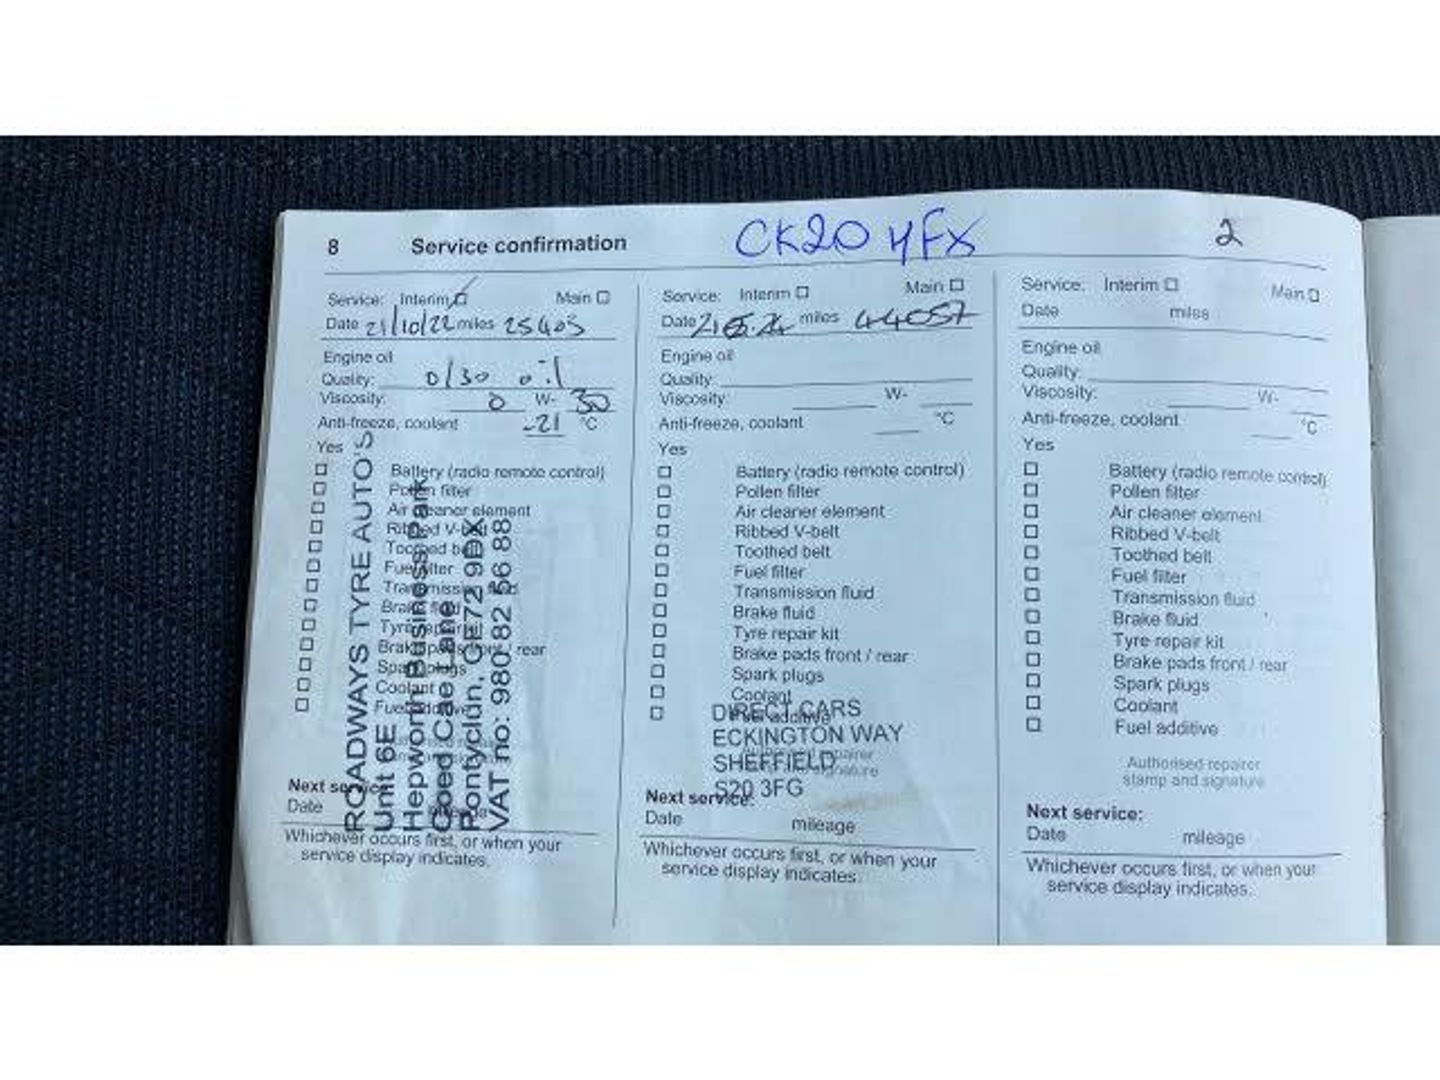 8 Service confirmation CK20 YFX 2
Service: Interim Main
Date 21/10/22 miles 25403
Engine oil
Quality: 0/30 oil
Viscosity: 0 W- 30
Anti-freeze, coolant -21 °C
Yes
Battery (radio remote control)
Pollen filter
Air cleaner element
Ribbed V-belt
Toothed belt
Fuel filter
Transmission fluid
Brake fluid
Tyre repair kit
Brake pads front / rear
Spark plugs
Coolant
Fuel additive
ROADWAYS TYRE AUTO'S
Unit 6E
Hepworth Business Park
Coed Cae Lane
Pontyclun, CF72 9DX
VAT no: 980 82 56 88
Next service:
Date mileage
Whichever occurs first, or when your
service display indicates.
Service: Interim Main
Date miles 44057
Engine oil
Quality:
Viscosity: W-
Anti-freeze, coolant °C
Yes
Battery (radio remote control)
Pollen filter
Air cleaner element
Ribbed V-belt
Toothed belt
Fuel filter
Transmission fluid
Brake fluid
Tyre repair kit
Brake pads front / rear
Spark plugs
Coolant
Fuel additive
Authorised repairer
stamp and signature
DIRECT CARS
ECKINGTON WAY
SHEFFIELD
S20 3FG
Next service:
Date mileage
Whichever occurs first, or when your
service display indicates.
Service: Interim Main
Date miles
Engine oil
Quality:
Viscosity: W-
Anti-freeze, coolant °C
Yes
Battery (radio remote control)
Pollen filter
Air cleaner element
Ribbed V-belt
Toothed belt
Fuel filter
Transmission fluid
Brake fluid
Tyre repair kit
Brake pads front / rear
Spark plugs
Coolant
Fuel additive
Authorised repairer
stamp and signature
Next service:
Date mileage
Whichever occurs first, or when your
service display indicates.